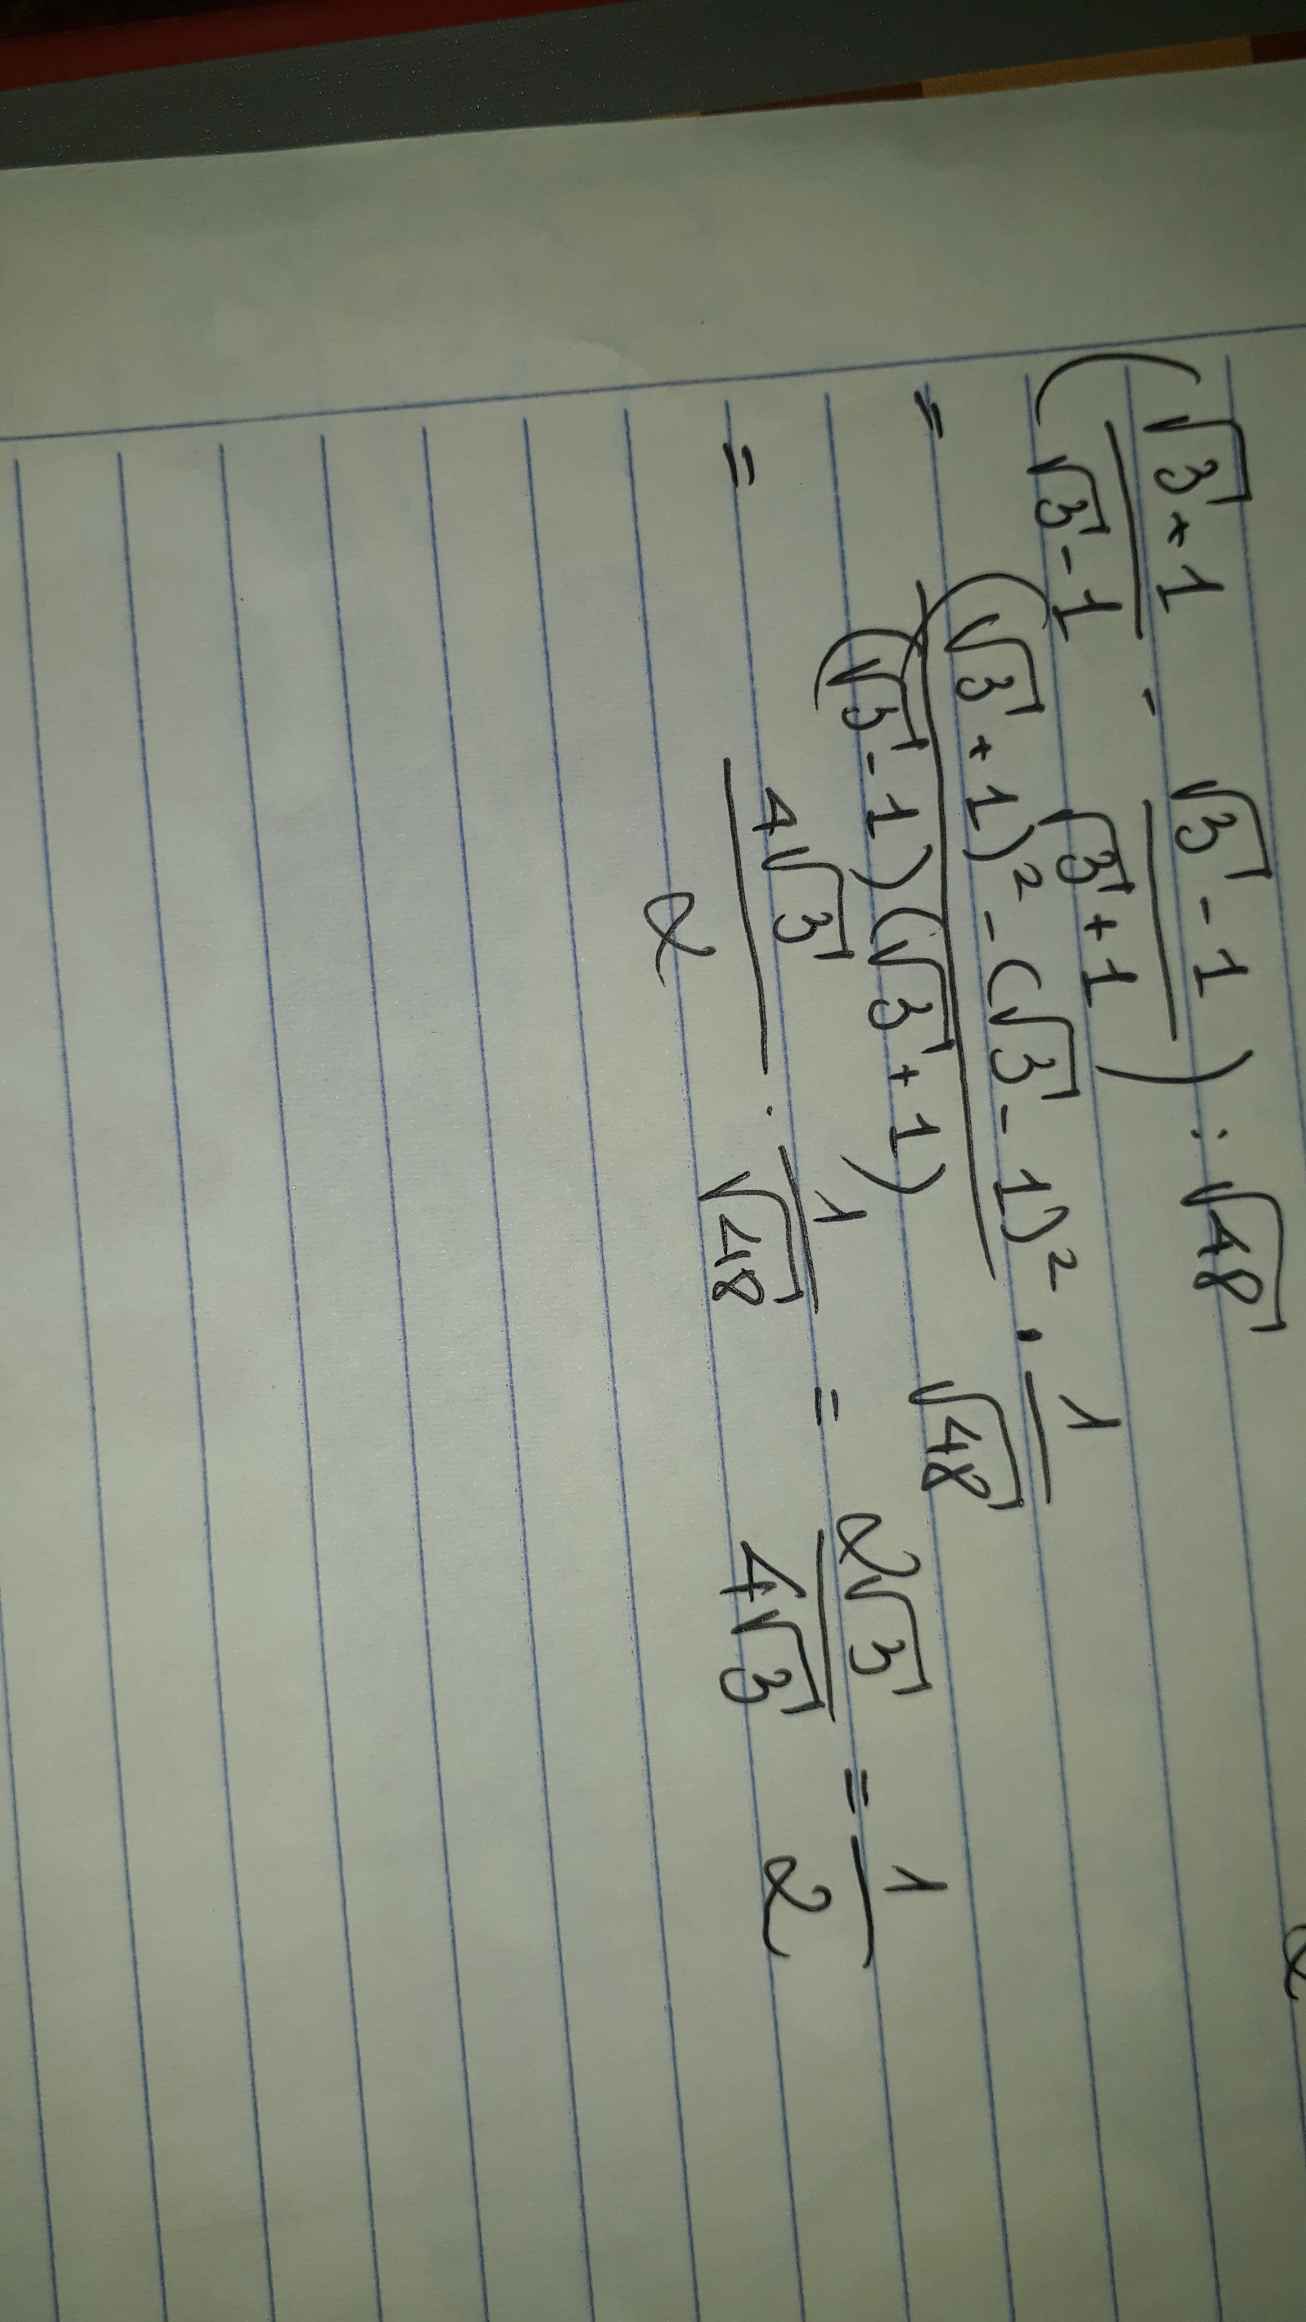 (√3+1/√3-1 - √3-1/√3+1) : √48
= (√3+1)² - (√3-1)²/(√3-1)(√3+1) · 1/√48
= 4√3/2 · 1/√48 = 2√3/4√3 = 1/2